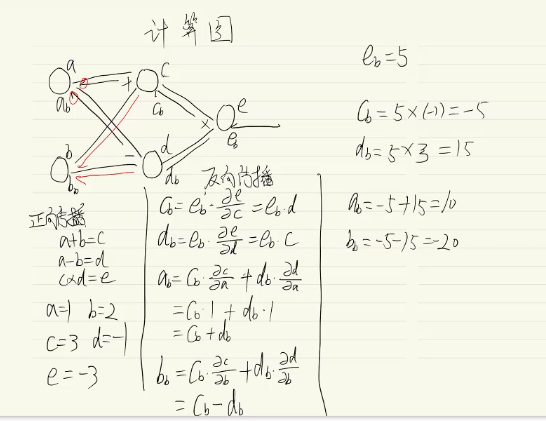 计算图
a
a_b
+
c
c_b
e
×
e_b
b
b_b
-
d
d_b
正向传播
a+b=c
a-b=d
c×d=e
a=1 b=2
c=3 d=-1
e=-3
反向传播
c_b=e_b·∂e/∂c=e_b·d
d_b=e_b·∂e/∂d=e_b·c
a_b=c_b·∂c/∂a+d_b·∂d/∂a
=c_b·1+d_b·1
=c_b+d_b
b_b=c_b·∂c/∂b+d_b·∂d/∂b
=c_b-d_b
e_b=5
c_b=5×(-1)=-5
d_b=5×3=15
a_b=-5+15=10
b_b=-5-15=-20